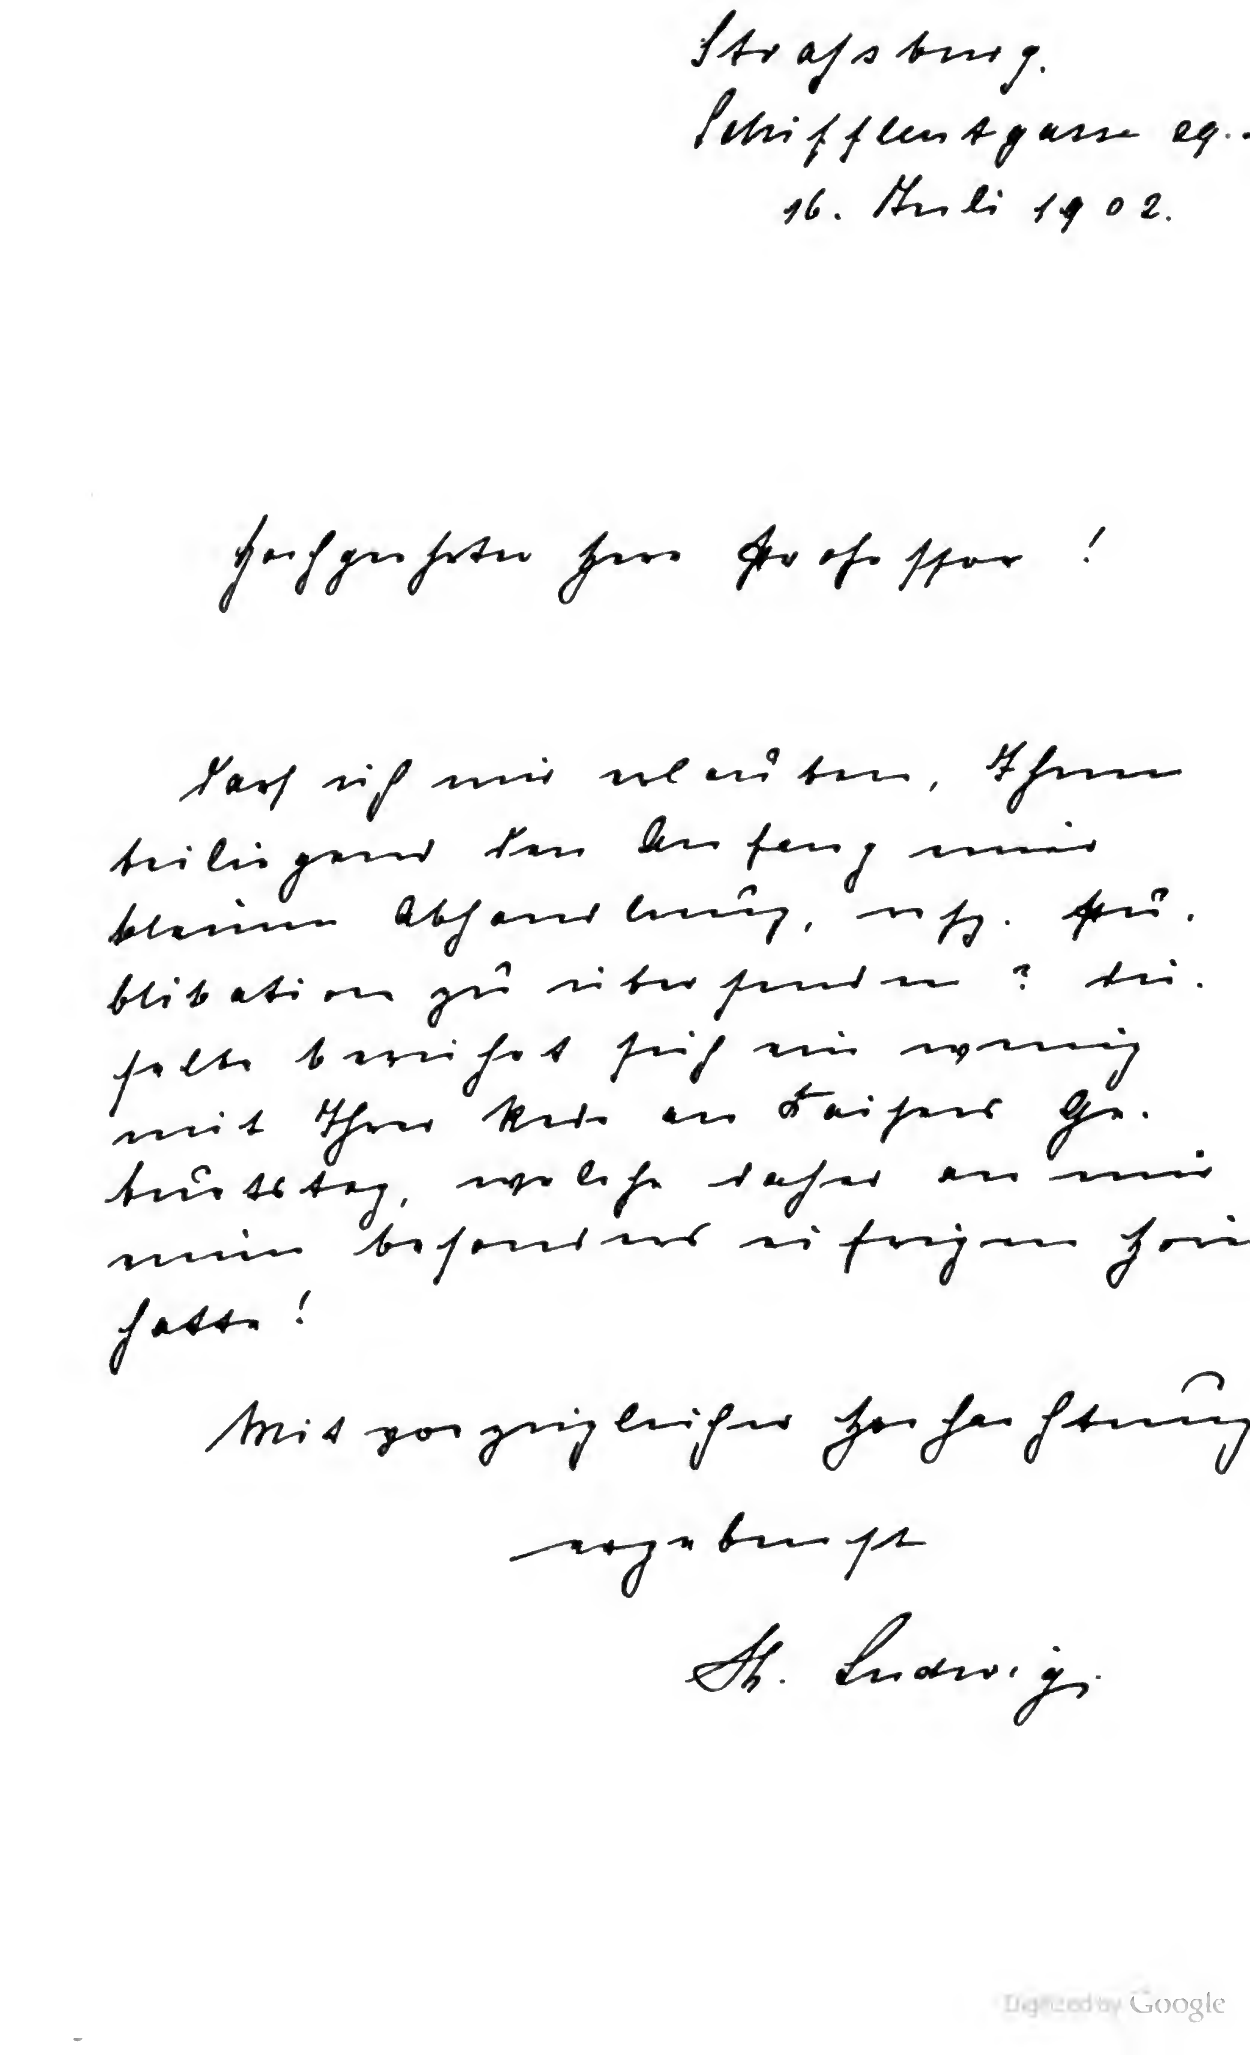 Strassburg.
Schiffleutgasse 29.
16. Juli 1902.
Hochgeehrter Herr Professor!
Darf ich mir erlauben, Ihnen
beiliegend den Anfang einer
kleinen Abhandlung, resp. Pu-
blikation zu übersenden? Die-
selbe berührt sich ein wenig
mit Ihrer Rede an Kaisers Ge-
burtstag, welche daher an mir
einen besonders eifrigen Hörer
hatte!
Mit vorzüglicher Hochachtung
ergebenst
Th. Ludwig.
Digitized by Google